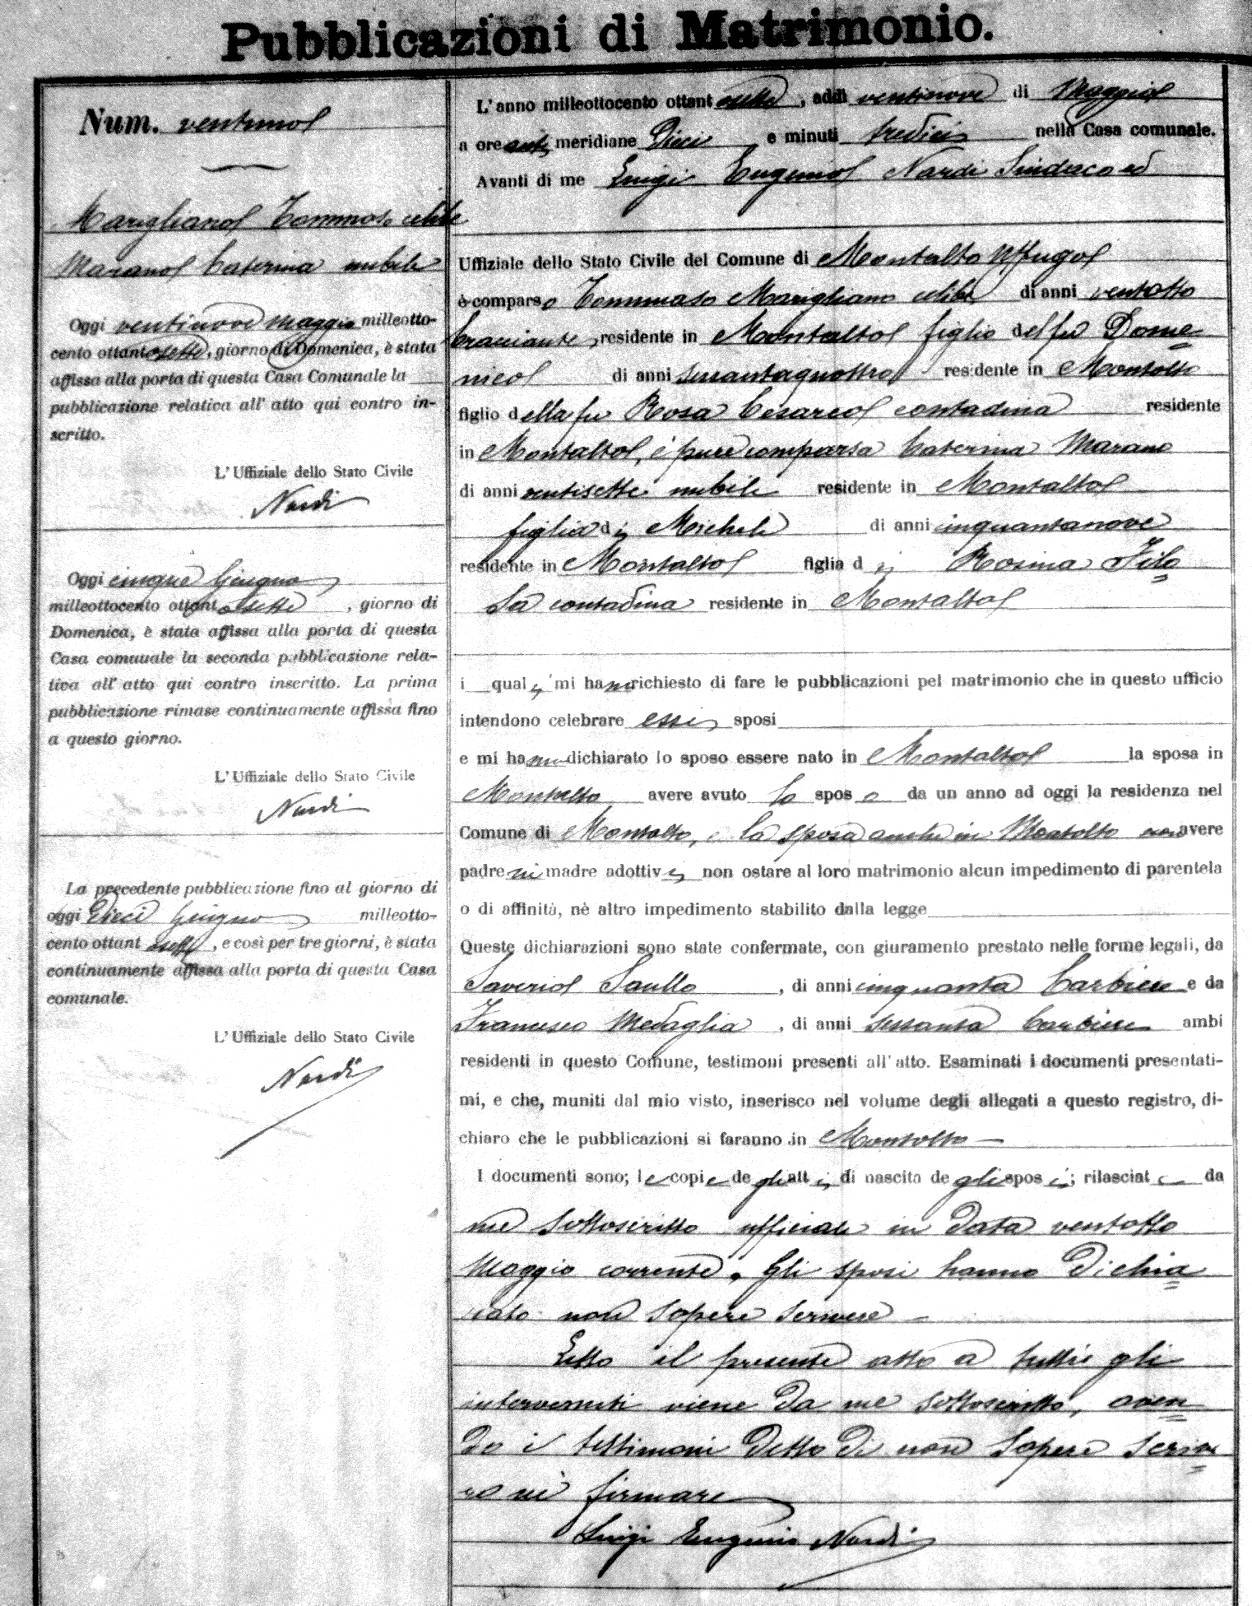 Pubblicazioni di Matrimonio.
Num. ventuno
Marigliano Tommaso celibe
Marano Caterina nubile
Oggi ventinove maggio milleotto-
cento ottantasette, giorno di Domenica, è stata
affissa alla porta di questa Casa Comunale la
pubblicazione relativa all' atto qui contro in-
scritto.
L' Uffiziale dello Stato Civile
Nardi
Oggi cinque Giugno
milleottocento ottantasette, giorno di
Domenica, è stata affissa alla porta di questa
Casa comunale la seconda pubblicazione rela-
tiva all' atto qui contro inscritto. La prima
pubblicazione rimase continuamente affissa fino
a questo giorno.
L' Uffiziale dello Stato Civile
Nardi
La precedente pubblicazione fino al giorno di
oggi Dieci Giugno milleotto-
cento ottantasette, e così per tre giorni, è stata
continuamente affissa alla porta di questa Casa
comunale.
L' Uffiziale dello Stato Civile
Nardi
L' anno milleottocento ottantasette, addì ventinove di Maggio
a ore anti meridiane Dieci e minuti tredici nella Casa comunale.
Avanti di me Luigi Eugenio Nardi Sindaco ed
Uffiziale dello Stato Civile del Comune di Montalto Uffugo
è comparso Tommaso Marigliano celibe di anni ventotto
bracciante, residente in Montalto figlio del fu Dome=
nico di anni sessantaquattro residente in Montalto
figlio della fu Rosa Cesareo contadina residente
in Montalto, è pure comparsa Caterina Marano
di anni ventisette nubile residente in Montalto
figlia di Michele di anni cinquantanove
residente in Montalto figlia di Rosina Filo=
sa contadina residente in Montalto
i quali mi hanno richiesto di fare le pubblicazioni pel matrimonio che in questo ufficio
intendono celebrare essi sposi
e mi hanno dichiarato lo sposo essere nato in Montalto la sposa in
Montalto, avere avuto lo sposo da un anno ad oggi la residenza nel
Comune di Montalto, e la sposa anche in Montalto non avere
padre nè madre adottivi, non ostare al loro matrimonio alcun impedimento di parentela
o di affinità, nè altro impedimento stabilito dalla legge
Queste dichiarazioni sono state confermate, con giuramento prestato nelle forme legali, da
Saverio Saullo, di anni cinquanta barbiere e da
Francesco Medaglia, di anni sessanta barbiere ambi
residenti in questo Comune, testimoni presenti all' atto. Esaminati i documenti presentati-
mi, e che, muniti dal mio visto, inserisco nel volume degli allegati a questo registro, di-
chiaro che le pubblicazioni si faranno in Montalto
I documenti sono; le copie degli atti di nascita degli sposi; rilasciate da
me sottoscritto ufficiale in data ventotto
Maggio corrente. Gli sposi hanno dichia=
rato non sapere scrivere
Letto il presente atto a tutti gli
intervenuti viene da me sottoscritto, aven=
do i testimoni detto di non sapere scrive=
re nè firmare
Luigi Eugenio Nardi